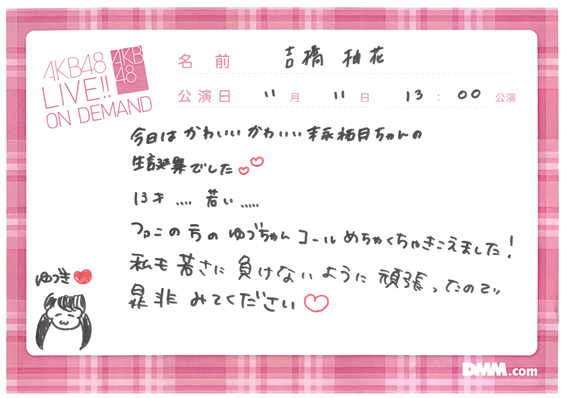 AKB48
LIVE!!
ON DEMAND
AKB
48
名前 吉橋柚花
公演日 11月11日 13:00公演
今日は かわいい かわいい 柚月ちゃんの
生誕祭でした
13才 .... 若い .....
ファンの方の ゆづちゃん コール めちゃくちゃきこえました!
私も 若さに 負けないように 頑張ったので
是非 みてください♡
ゆづき
DMM.com